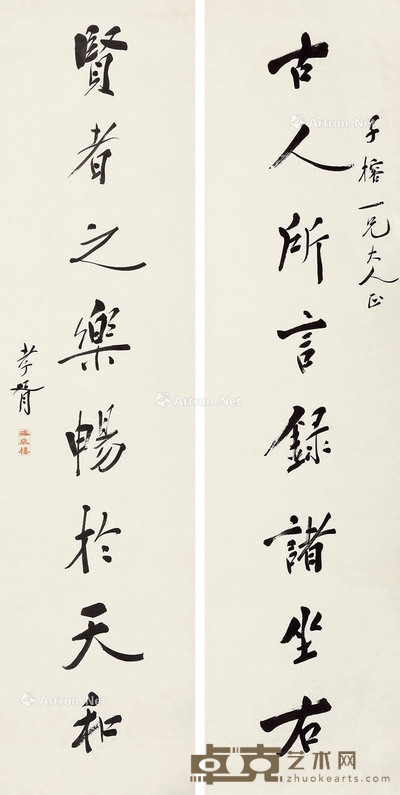 子榕一兄大人正
古人所言錄諸坐右
賢者之樂暢於天和
孝胥
海藏樓
Artron.Net
Artron.Net
Artron.Net
Artron.Net
Artron.Net
Artron.Net
卓克艺术网
www.zhuokearts.com